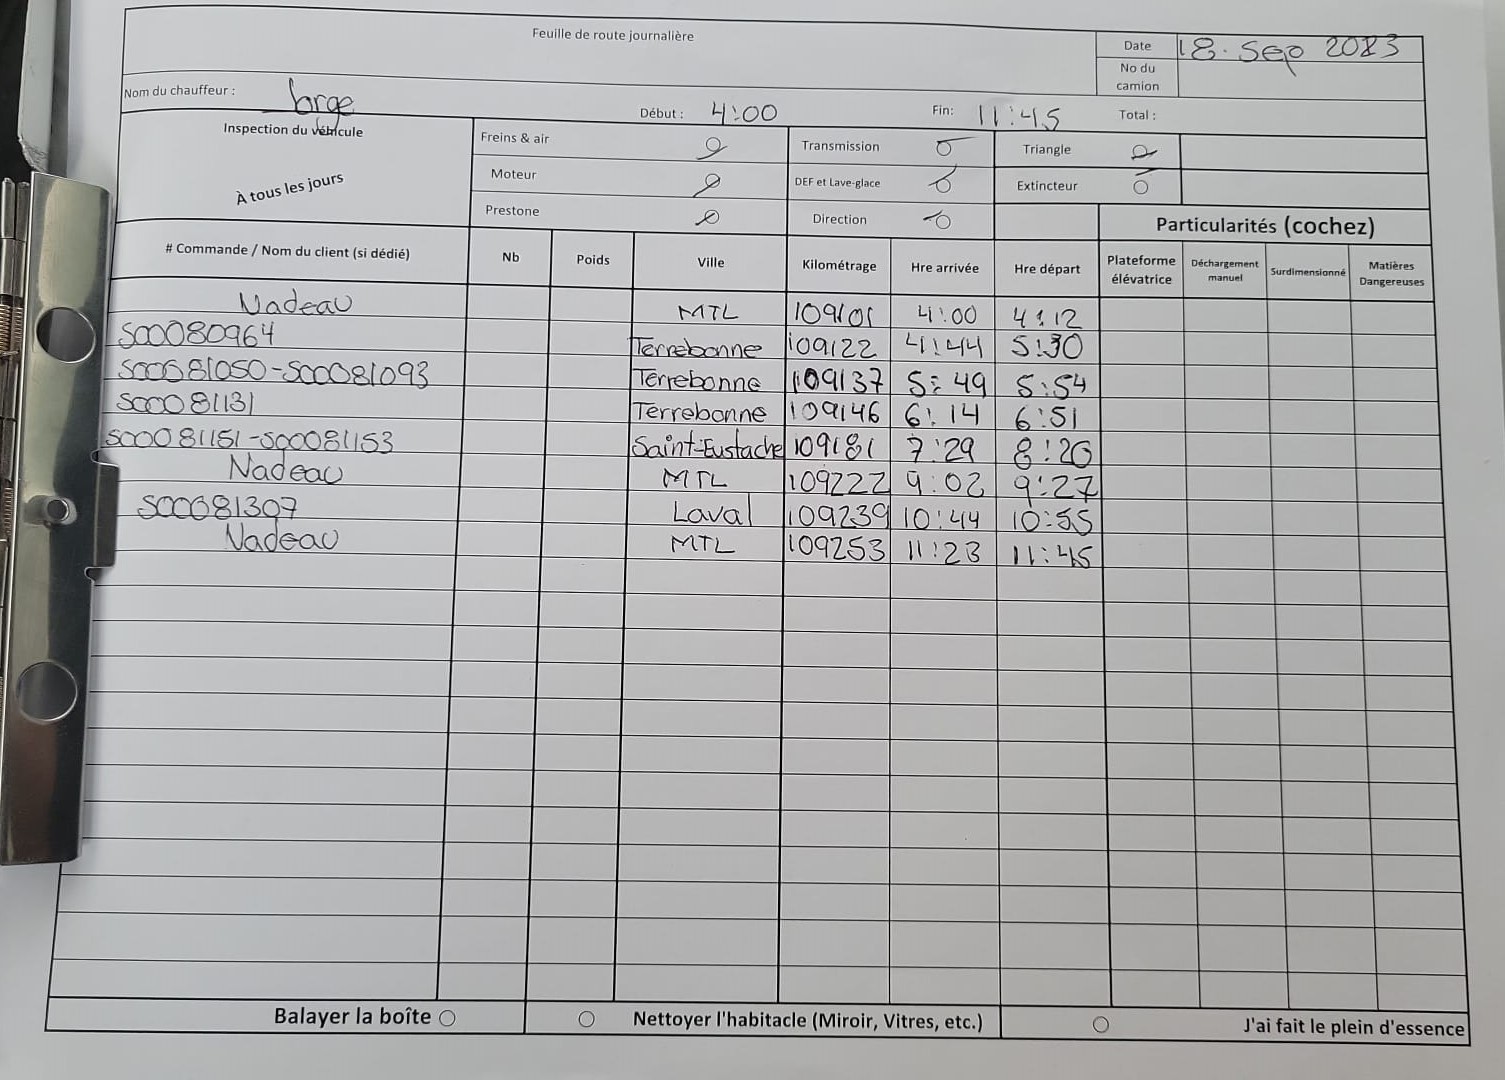 Feuille de route journalière
Date 18. Sep 2023
No du camion
Nom du chauffeur : Jorge Début : 4:00 Fin: 11:45 Total :
Inspection du véhicule
À tous les jours
Freins & air Transmission Triangle
Moteur DEF et Lave-glace Extincteur
Prestone Direction
Particularités (cochez)
# Commande / Nom du client (si dédié) Nb Poids Ville Kilométrage Hre arrivée Hre départ Plateforme élévatrice Déchargement manuel Surdimensionné Matières Dangereuses
Nadeau MTL 109101 4:00 4:12
S00080964 Terrebonne 109122 4:44 5:30
S00081050-S00081093 Terrebonne 109137 5:49 5:54
S00081131 Terrebonne 109146 6:14 6:51
S00081151-S00081153 Saint-Eustache 109181 7:29 8:20
Nadeau MTL 109222 9:02 9:27
S00081307 Laval 109239 10:44 10:55
Nadeau MTL 109253 11:23 11:45
Balayer la boîte Nettoyer l'habitacle (Miroir, Vitres, etc.) J'ai fait le plein d'essence